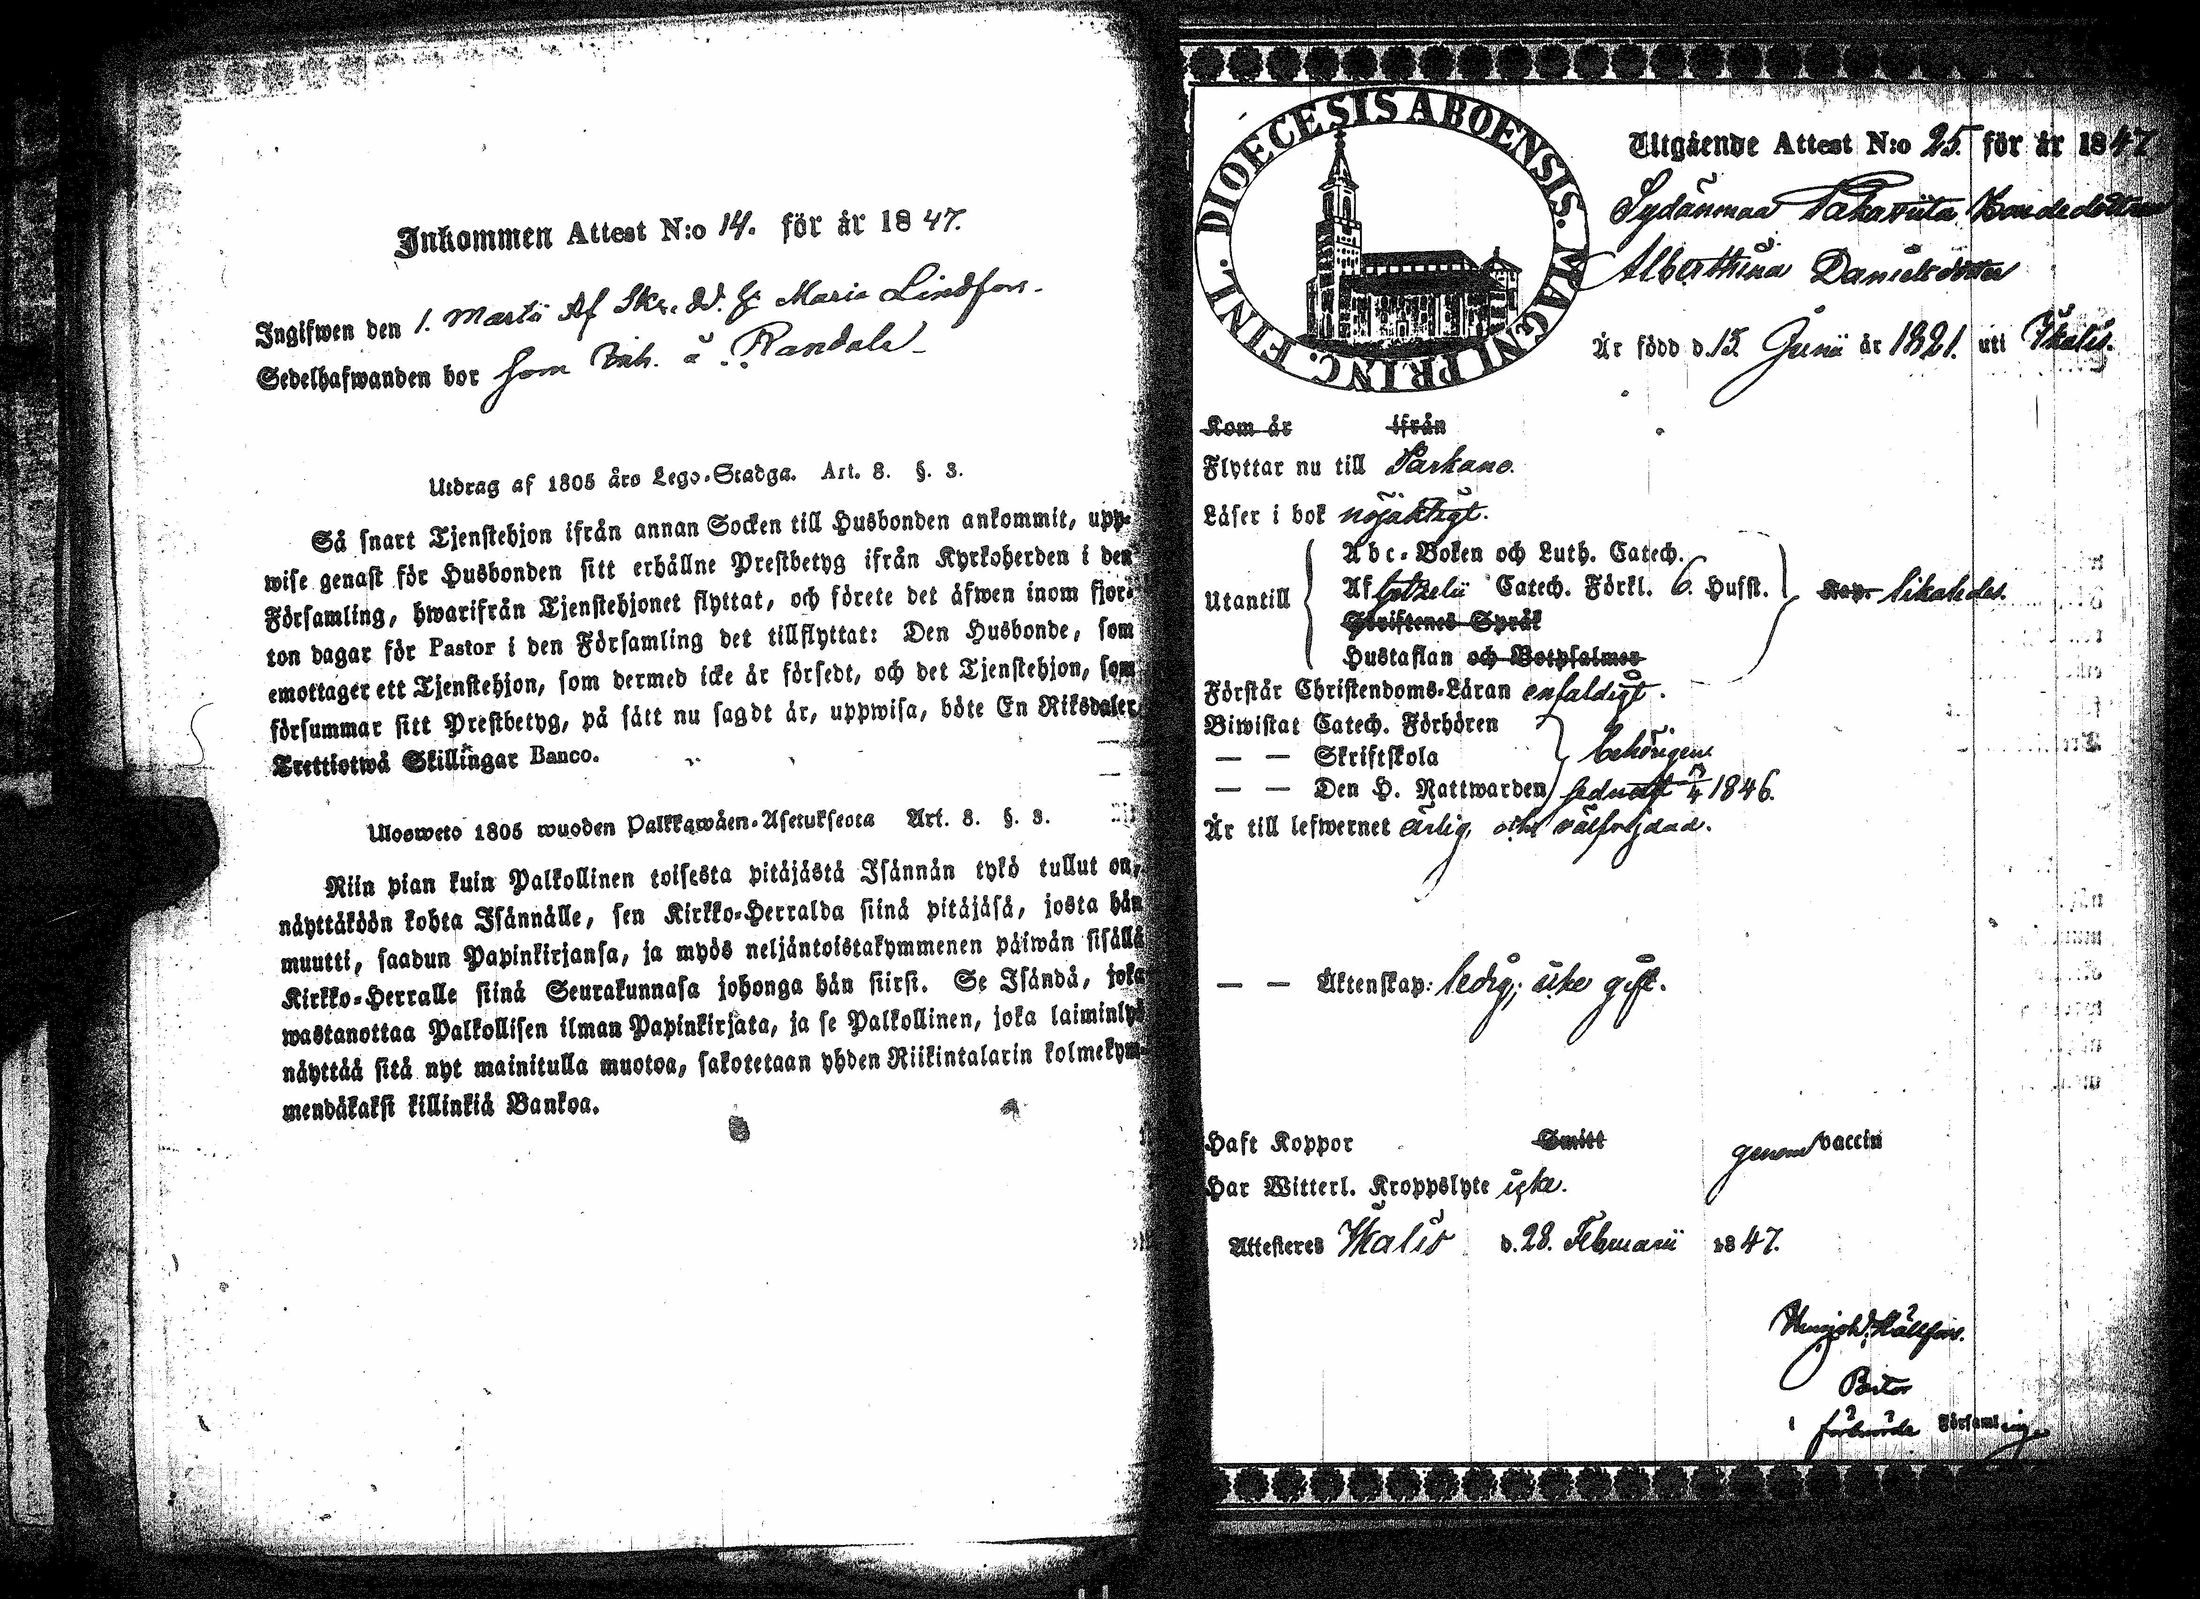 Inkommen Attest N:o 14. för år 1847.
Ingifwen den 1. Martii Af Skr. W. G. Maria Lindfors.
Sedelhafwanden bor som Inh. å Randala
Utdrag af 1805 års Lego-Stadga. Art. 8. §. 3.
Så snart Tjenstehjon ifrån annan Socken till Husbonden ankommit, upp-
wise genast för Husbonden sitt erhållne Prestbetyg ifrån Kyrkoherden i den
Församling, hwarifrån Tjenstehjonet flyttat, och förete det äfwen inom fjor-
ton dagar för Pastor i den Församling det tillflyttat: Den Husbonde, som
emottager ett Tjenstehjon, som dermed icke är försedt, och det Tjenstehjon, som
försummar sitt Prestbetyg, på sätt nu sagdt är, uppwisa, böte En Riksdaler
Trettiotwå Skillingar Banco.
Ulosweto 1805 wuoden Palkkawäen-Asetuksesta Art. 8. §. 3.
Niin pian kuin Palkollinen toisesta pitäjästä Isännän tykö tullut on,
näyttäköön kohta Isännälle, sen Kirkko-Herralda siinä pitäjäsä, josta hän
muutti, saadun Papinkirjansa, ja myös neljäntoistakymmenen päiwän sisällä
Kirkko-Herralle siinä Seurakunnasa johonga hän siirsi. Se Isändä, joka
wastanottaa Palkollisen ilman Papinkirjata, ja se Palkollinen, joka laiminlyö
näyttää sitä nyt mainitulla muotoa, sakotetaan yhden Riikintalarin kolmekym-
mendäkaksi killinkiä Bankoa.
DIOECESIS ABOENSIS. MAGNI PRINC. FINL.
Utgående Attest N:o 25. för år 1847
Sydänmaa Bondedottren
Alberthina Danielsdotter
Är född d. 15 Junii år 1821. uti Ikalis.
Kom år ifrån
Flyttar nu till Parkano.
Läser i bok nöjaktigt.
Utantill
Abc-Boken och Luth. Catech.
Af Gezelii Catech. Förkl. 6. Husst. Kap. likaledes.
Skriftenes Språk
Hustaflan och Botpsalmer
Förstår Christendoms-Läran enfaldigt.
Biwistat Catech. Förhören
— — Skriftskola behörigen
— — Den H. Nattwarden sednast 1846.
Är till lefwernet ärlig och välfrejdad.
— — Äktenskap: ledig, icke gift.
Haft Koppor Smitt genom vaccin
Har Witterl. Kroppslyte icke.
Attesteras Ikalis d. 28. Februarii 1847.
Hällfors.
Pastor
i förberörde Församling